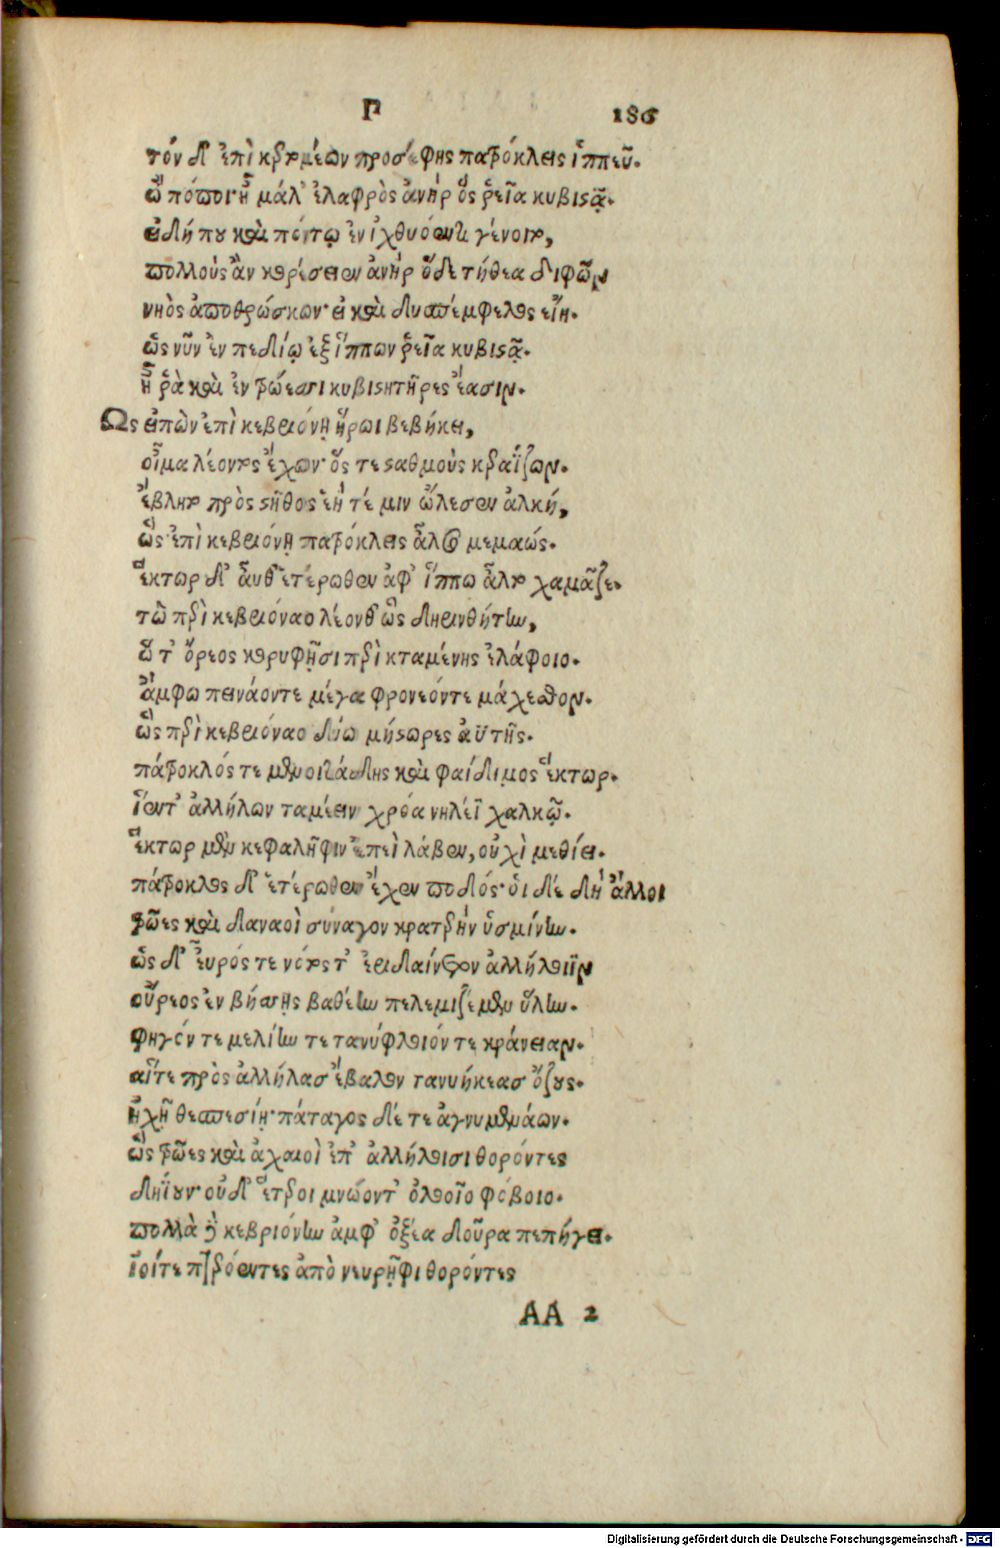 Π 186
τόν δ' ἐπικερτομέων προσέφης πατρόκλεις ἱππεῦ.
ὢ πόποι ἦ μάλ' ἐλαφρὸς ἀνὴρ ὃς ῥεῖα κυβιστᾷ.
εἰ δή που καὶ πόντῳ ἐν ἰχθυόεντι γένοιτο,
πολλοὺς ἂν κορέσειεν ἀνὴρ ὅδε τήθεα διφῶν
νηὸς ἀποθρώσκων· εἰ καὶ δυσπέμφελος εἴη.
ὡς νῦν ἐν πεδίῳ ἐξ ἵππων ῥεῖα κυβιστᾷ.
ἦ ῥὰ καὶ ἐν τρώεσσι κυβιστητῆρες ἔασιν.
Ως εἰπὼν ἐπὶ κεβριόνῃ ἥρωι βεβήκει,
οἶμα λέοντος ἔχων· ὅς τε σταθμοὺς κεραΐζων.
ἔβλητο πρὸς στῆθος ἑή τέ μιν ὤλεσεν ἀλκή,
ὣς ἐπὶ κεβριόνῃ πατρόκλεις ἆλσο μεμαώς.
ἕκτωρ δ' αὖθ' ἑτέρωθεν ἀφ' ἵππω ἆλτο χαμᾶζε.
τὼ περὶ κεβριόναο λέονθ' ὣς δηρινθήτην,
ὥ τ' ὄρεος κορυφῇσι περὶ κταμένης ἐλάφοιο.
ἄμφω πεινάοντε μέγα φρονέοντε μάχεσθον.
ὣς περὶ κεβριόναο δύω μήστωρες ἀϋτῆς.
πάτροκλός τε μενοιτιάδης καὶ φαίδιμος ἕκτωρ.
ἵεντ' ἀλλήλων ταμέειν χρόα νηλέϊ χαλκῷ.
ἕκτωρ μὲν κεφαλῆφιν ἐπεὶ λάβεν, οὐχὶ μεθίει.
πάτροκλος δ' ἑτέρωθεν ἔχεν ποδός· οἱ δὲ δὴ ἄλλοι
τρῶες καὶ δαναοὶ σύναγον κρατερὴν ὑσμίνην.
ὡς δ' εὖρός τε νότος τ' ἐριδαίνετον ἀλλήλοιϊν
οὔρεος ἐν βήσσῃς βαθέην πελεμιζέμεν ὕλην.
φηγόν τε μελίην τε τανύφλοιόν τε κράνειαν.
αἵτε πρὸς ἀλλήλας ἔβαλον τανυήκεας ὄζους.
ἠχῇ θεσπεσίῃ· πάταγος δέ τε ἀγνυμενάων.
ὣς τρῶες καὶ ἀχαιοὶ ἐπ' ἀλλήλοισι θορόντες
δῄϊουν· οὐδ' ἕτεροι μνώοντ' ὀλοοῖο φόβοιο.
πολλὰ δὲ κεβριόνην ἀμφ' ὀξέα δοῦρα πεπήγει.
ἰοίτε πτερόεντες ἀπὸ νευρῆφι θορόντες
ΑΑ 2
Digitalisierung gefördert durch die Deutsche Forschungsgemeinschaft - DFG